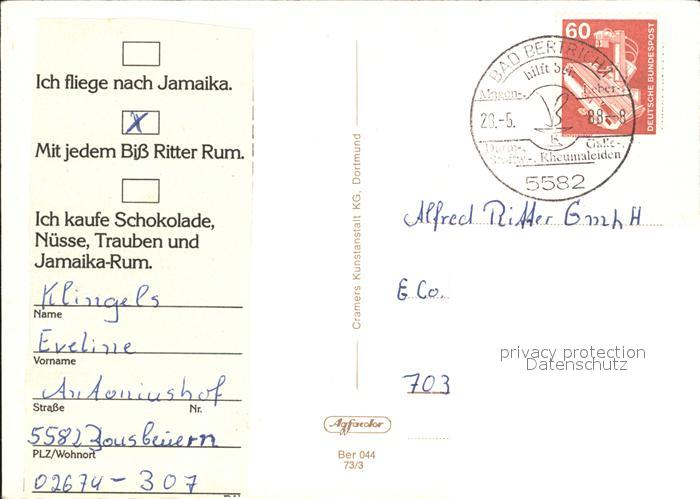 Ich fliege nach Jamaika.
X
Mit jedem Biß Ritter Rum.
Ich kaufe Schokolade,
Nüsse, Trauben und
Jamaika-Rum.
Klingels
Name
Eveline
Vorname
Antoniushof
Straße Nr.
5582
PLZ/Wohnort
02674 - 307
Cramers Kunstanstalt KG, Dortmund
Agfacolor
Ber 044
73/3
60
DEUTSCHE BUNDESPOST
BAD BERTRICH
hilft bei
Magen-, Leber-,
28.-5. 88.-8
Darm-, Galle-,
Stoffw.-, Rheumaleiden
5582
Alfred Ritter GmbH
& Co.
703
privacy protection
Datenschutz